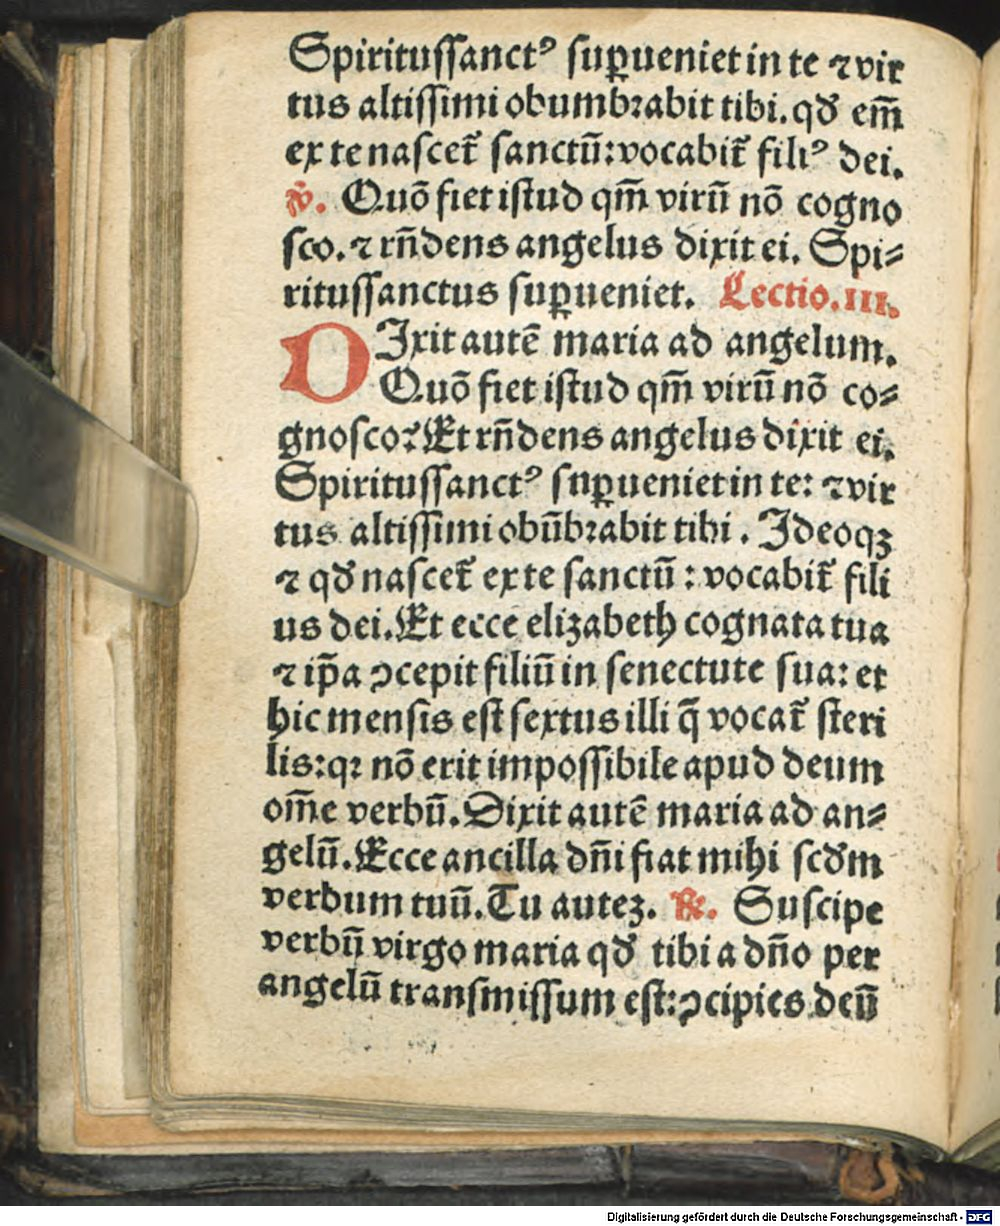 Spiritussanctꝰ suꝑueniet in te ⁊ vir
tus altissimi obumbꝛabit tibi. qđ em̄
ex te nascet̄ sanctū: vocabit̄ filiꝰ dei.
℣. Quō fiet istud qm̄ virū nō cogno
sco. ⁊ rn̄dens angelus dixit ei. Spi⸗
ritussanctus suꝑueniet. Lectio. III.
DIxit autē maria ad angelum.
Quō fiet istud qm̄ virū nō co⸗
gnosco? Et rn̄dens angelus dixit ei.
Spiritussanctꝰ suꝑueniet in te: ⁊ vir
tus altissimi obūbꝛabit tibi. Ideoqꝫ
⁊ qđ nascet̄ ex te sanctū: vocabit̄ fili
us dei. Et ecce elizabeth cognata tua
⁊ ip̄a ↄcepit filiū in senectute sua: et
hic mensis est sextus illi q̄ vocat̄ steri
lis: qꝛ nō erit impossibile apud deum
om̄e verbū. Dixit autē maria ad an⸗
gelū. Ecce ancilla dn̄i fiat mihi scđm
verbum tuū. Tu auteꝫ. ℟. Suscipe
verbū virgo maria qđ tibi a dn̄o per
angelū transmissum est: ↄcipies deū
Digitalisierung gefördert durch die Deutsche Forschungsgemeinschaft - DFG